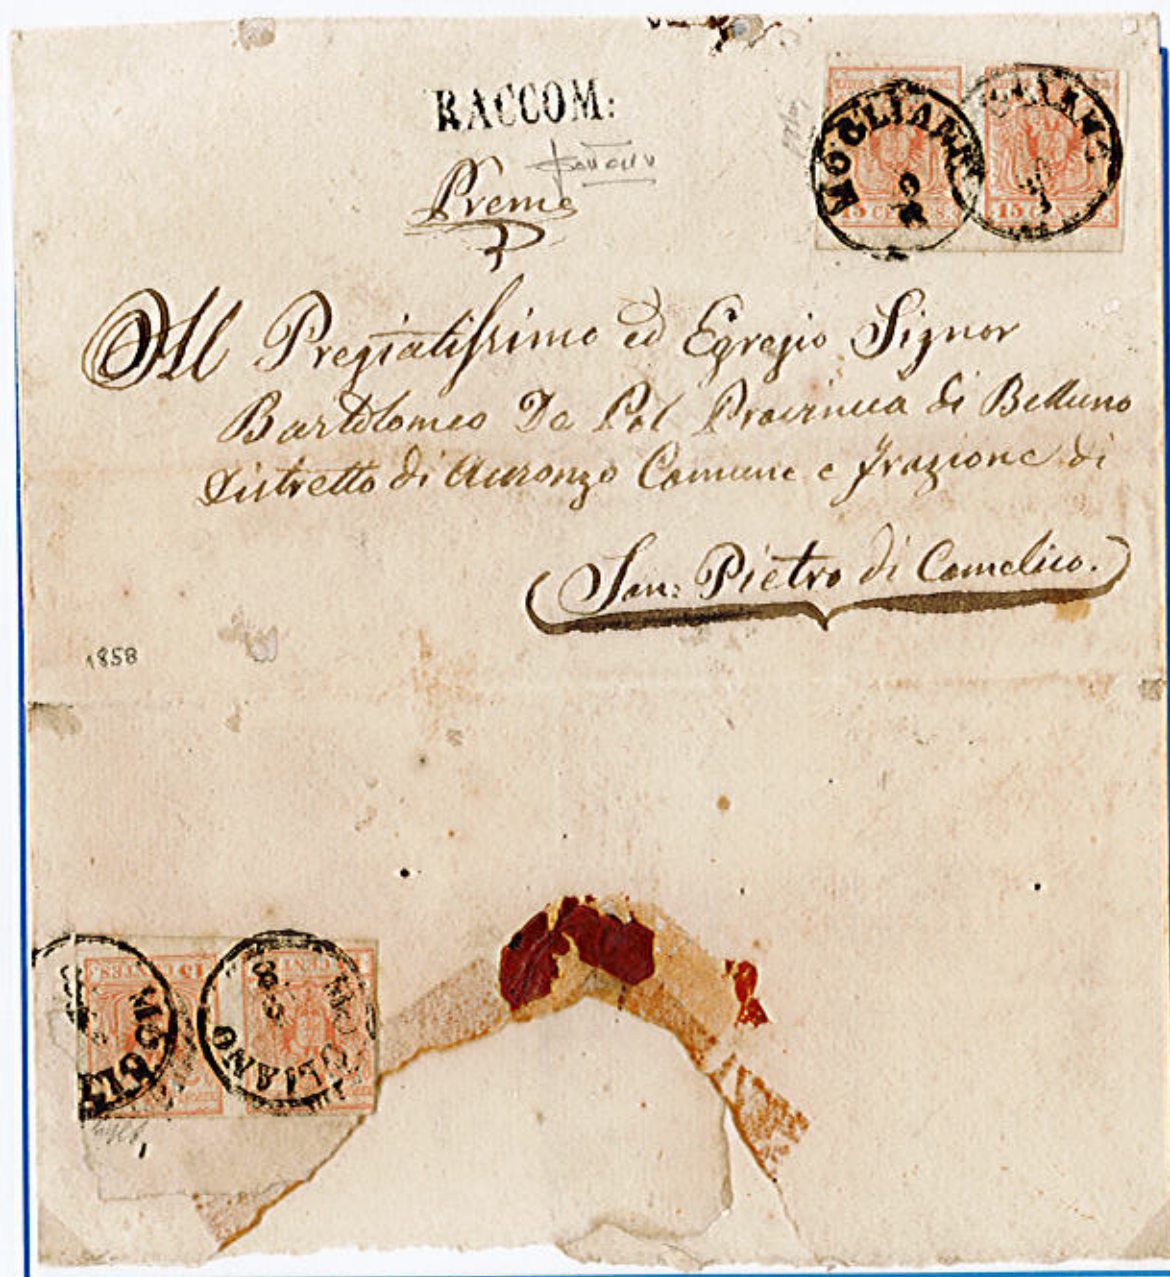 RACCOM:
Preme
MOGLIANO
15 CENTES.
15 CENTES.
All Pregiatissimo ed Egregio Signor
Bartolomeo Da Pol Provincia di Belluno
Distretto di Auronzo Comune e frazione di
San: Pietro di Comelico.
1858
15 CENTES.
MOGLI
CENT
MOGLIANO